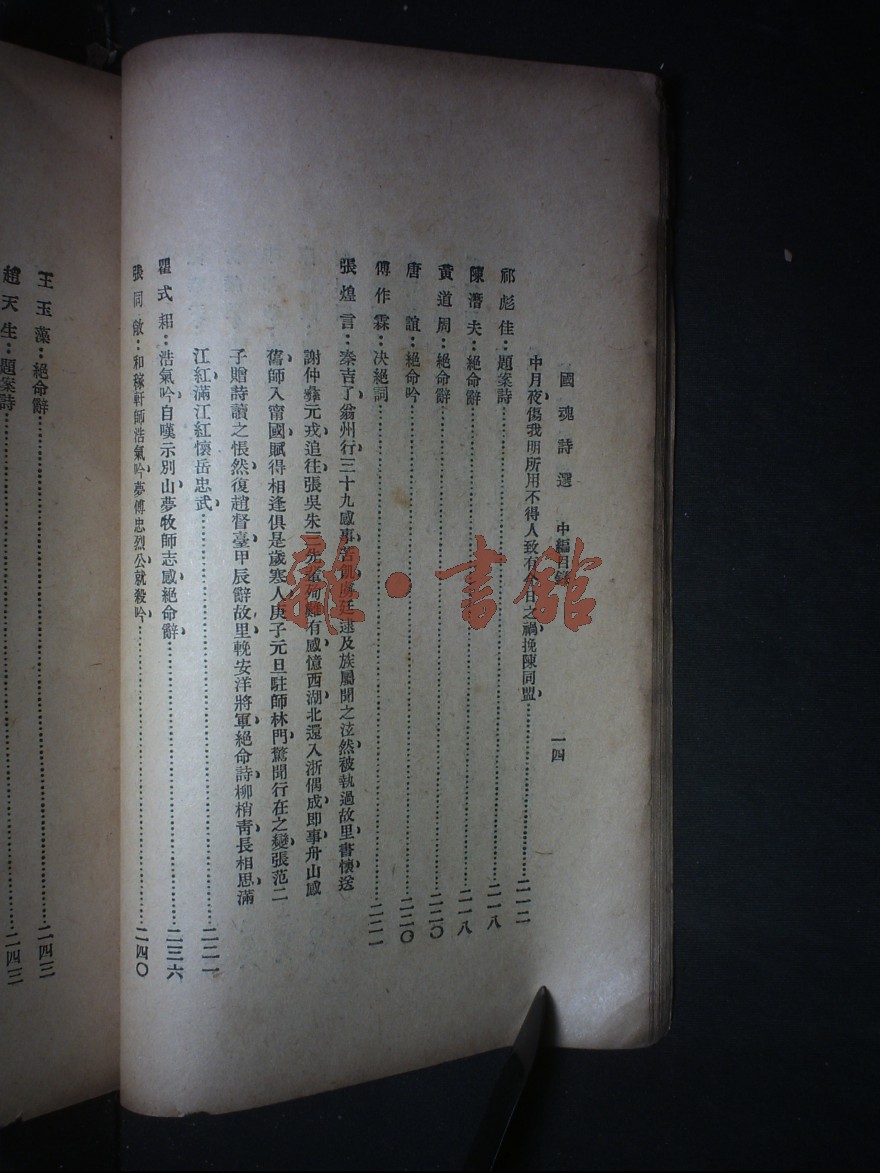 國魂詩選 中編目錄 一四
中月夜傷我明所用不得人致有今日之禍挽陳同盟⋯⋯二一二
祁彪佳：題案詩⋯⋯二一八
陳潛夫：絕命辭⋯⋯二一八
黃道周：絕命辭⋯⋯二二〇
唐 誼：絕命吟⋯⋯二二〇
傅作霖：決絕詞⋯⋯二二一
張煌言：秦吉了、翁州行三十九感事、苦 廷逮及族屬聞之泫然、被執過故里、書懷、送
謝仲彝元戎、追往、張吳朱三先輩殉難有感、憶西湖、北還入浙偶成、即事、舟山感
舊、師入甯國、賦得相逢俱是歲寒人、庚子元旦駐師林門、驚聞行在之變、張范二
子贈詩讀之悵然、復趙督臺、甲辰辭故里、輓安洋將軍、絕命詩、柳梢青、長相思、滿
江紅、滿江紅懷岳忠武、⋯⋯二二一
瞿式耜：浩氣吟、自嘆、示別山、夢牧師志感、絕命辭、⋯⋯二三六
張同敞：和稼軒師浩氣吟、夢傅忠烈公、就殺吟、⋯⋯二四〇
王玉藻：絕命辭⋯⋯二四三
趙天生：題案詩⋯⋯二四三
雜·書館